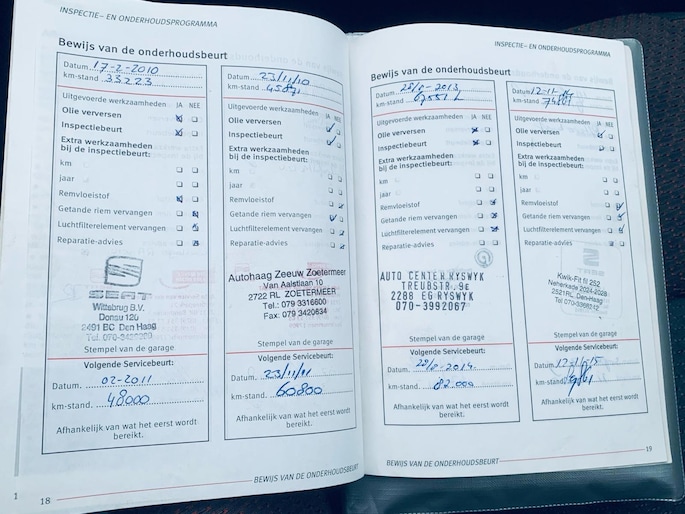 INSPECTIE- EN ONDERHOUDSPROGRAMMA
Bewijs van de onderhoudsbeurt
Datum 17-2-2010
km-stand 33223
Uitgevoerde werkzaamheden JA NEE
Olie verversen
Inspectiebeurt
Extra werkzaamheden
bij de inspectiebeurt:
km
jaar
Remvloeistof
Getande riem vervangen
Luchtfilterelement vervangen
Reparatie-advies
SEAT
Wittebrug B.V.
Donau 120
2491 BC Den Haag
Tel. 070-
Stempel van de garage
Volgende Servicebeurt:
Datum. 02-2011
km-stand. 48000
Afhankelijk van wat het eerst wordt
bereikt.
Datum 23/11/10
km-stand
Uitgevoerde werkzaamheden JA NEE
Olie verversen
Inspectiebeurt
Extra werkzaamheden
bij de inspectiebeurt:
km
jaar
Remvloeistof
Getande riem vervangen
Luchtfilterelement vervangen
Reparatie-advies
Autohaag Zeeuw Zoetermeer
Van Aalstlaan 10
2722 RL ZOETERMEER
Tel.: 079 3316600
Fax: 079 3420634
Stempel van de garage
Volgende Servicebeurt:
Datum. 23/11/11
km-stand. 60800
Afhankelijk van wat het eerst wordt
bereikt.
1 18
BEWIJS VAN DE ONDERHOUDSBEURT
INSPECTIE- EN ONDERHOUDSPROGRAMMA
Bewijs van de onderhoudsbeurt
Datum 28-8-2013
km-stand
Uitgevoerde werkzaamheden JA NEE
Olie verversen
Inspectiebeurt
Extra werkzaamheden
bij de inspectiebeurt:
km
jaar
Remvloeistof
Getande riem vervangen
Luchtfilterelement vervangen
Reparatie-advies
AUTO CENTER RYSWYK
TREUBSTR. 9E
2288 EG RYSWYK
070-3992067
Stempel van de garage
Volgende Servicebeurt:
Datum. 28/8-2014.
km-stand. 82.000
Afhankelijk van wat het eerst wordt
bereikt.
Datum 12-11-14
km-stand
Uitgevoerde werkzaamheden JA NEE
Olie verversen
Inspectiebeurt
Extra werkzaamheden
bij de inspectiebeurt:
km
jaar
Remvloeistof
Getande riem vervangen
Luchtfilterelement vervangen
Reparatie-advies
Kwik-Fit fil 252
Neherkade 2024-2028
2521RL, Den-Haag
Tel 070-3968242
Stempel van de garage
Volgende Servicebeurt:
Datum.
km-stand.
Afhankelijk van wat het eerst wordt
bereikt.
BEWIJS VAN DE ONDERHOUDSBEURT
19